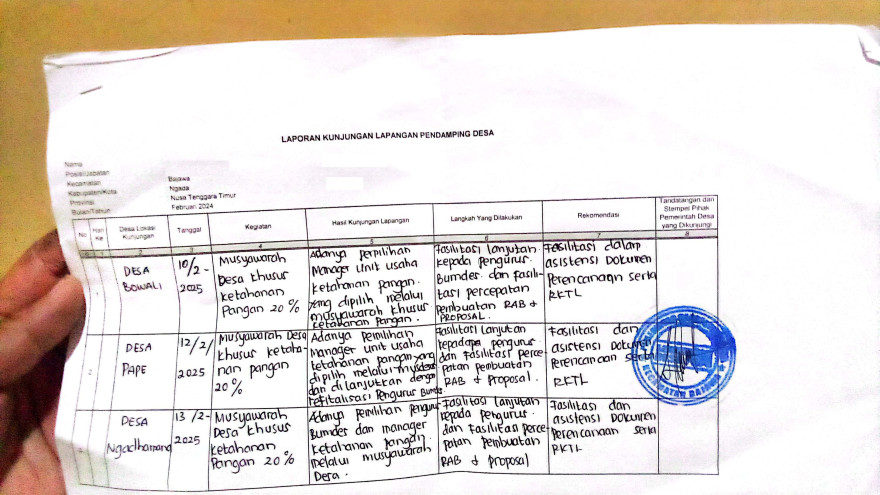 LAPORAN KUNJUNGAN LAPANGAN PENDAMPING DESA
Nama
Posisi/Jabatan
Kecamatan Bajawa
Kabupaten/Kota Ngada
Provinsi Nusa Tenggara Timur
Bulan/Tahun Februari 2024
No Hari Ke Desa Lokasi Kunjungan Tanggal Kegiatan Hasil Kunjungan Lapangan Langkah Yang Dilakukan Rekomendasi Tandatangan dan Stempel Pihak Pemerintah Desa yang Dikunjungi
2 3 4 5 6 7 8
DESA
BOWALI
10/2-
2025
Musyawarah
Desa khusus
ketahanan
Pangan 20%
Adanya pemilihan
Manager unit usaha
ketahanan pangan.
yang dipilih melalui
musyawarah khusus
ketahanan pangan.
Fasilitasi lanjutan
kepada pengurus.
Bumdes dan fasili-
tasi percepatan
pembuatan RAB &
PROPOSAL.
Fasilitasi dalam
asistensi Dokumen
Perencanaan serta
RKTL
2
DESA
PAPE
12/2/
2025
Musyawarah Desa
khusus ketaha-
nan pangan
20%
Adanya pemilihan
Manager unit usaha
ketahanan pangan yang
dipilih melalui musdesus
dan di lanjutkan dengan
refitalisasi Pengurus Bumdes
Fasilitasi lanjut
kepadapa pengurus
dan fasilitasi perce-
patan pembuatan
RAB & Proposal.
Fasilitasi dan
asistensi Dokumen
Perencanaan serta
RKTL
KECAMATAN BAJAWA
DESA
Ngadhamana
13/2-
2025
Musyawarah
Desa khusus
ketahanan
Pangan 20%
Adanya pemilihan pengurus
Bumdes dan manager
ketahanan pangan.
melalui musyawarah
Desa.
Fasilitasi lanjutan
kepada pengurus.
dan fasilitasi perce-
patan pembuatan
RAB & proposal
Fasilitasi dan
asistensi Dokumen
Perencanaan serta
RKTL